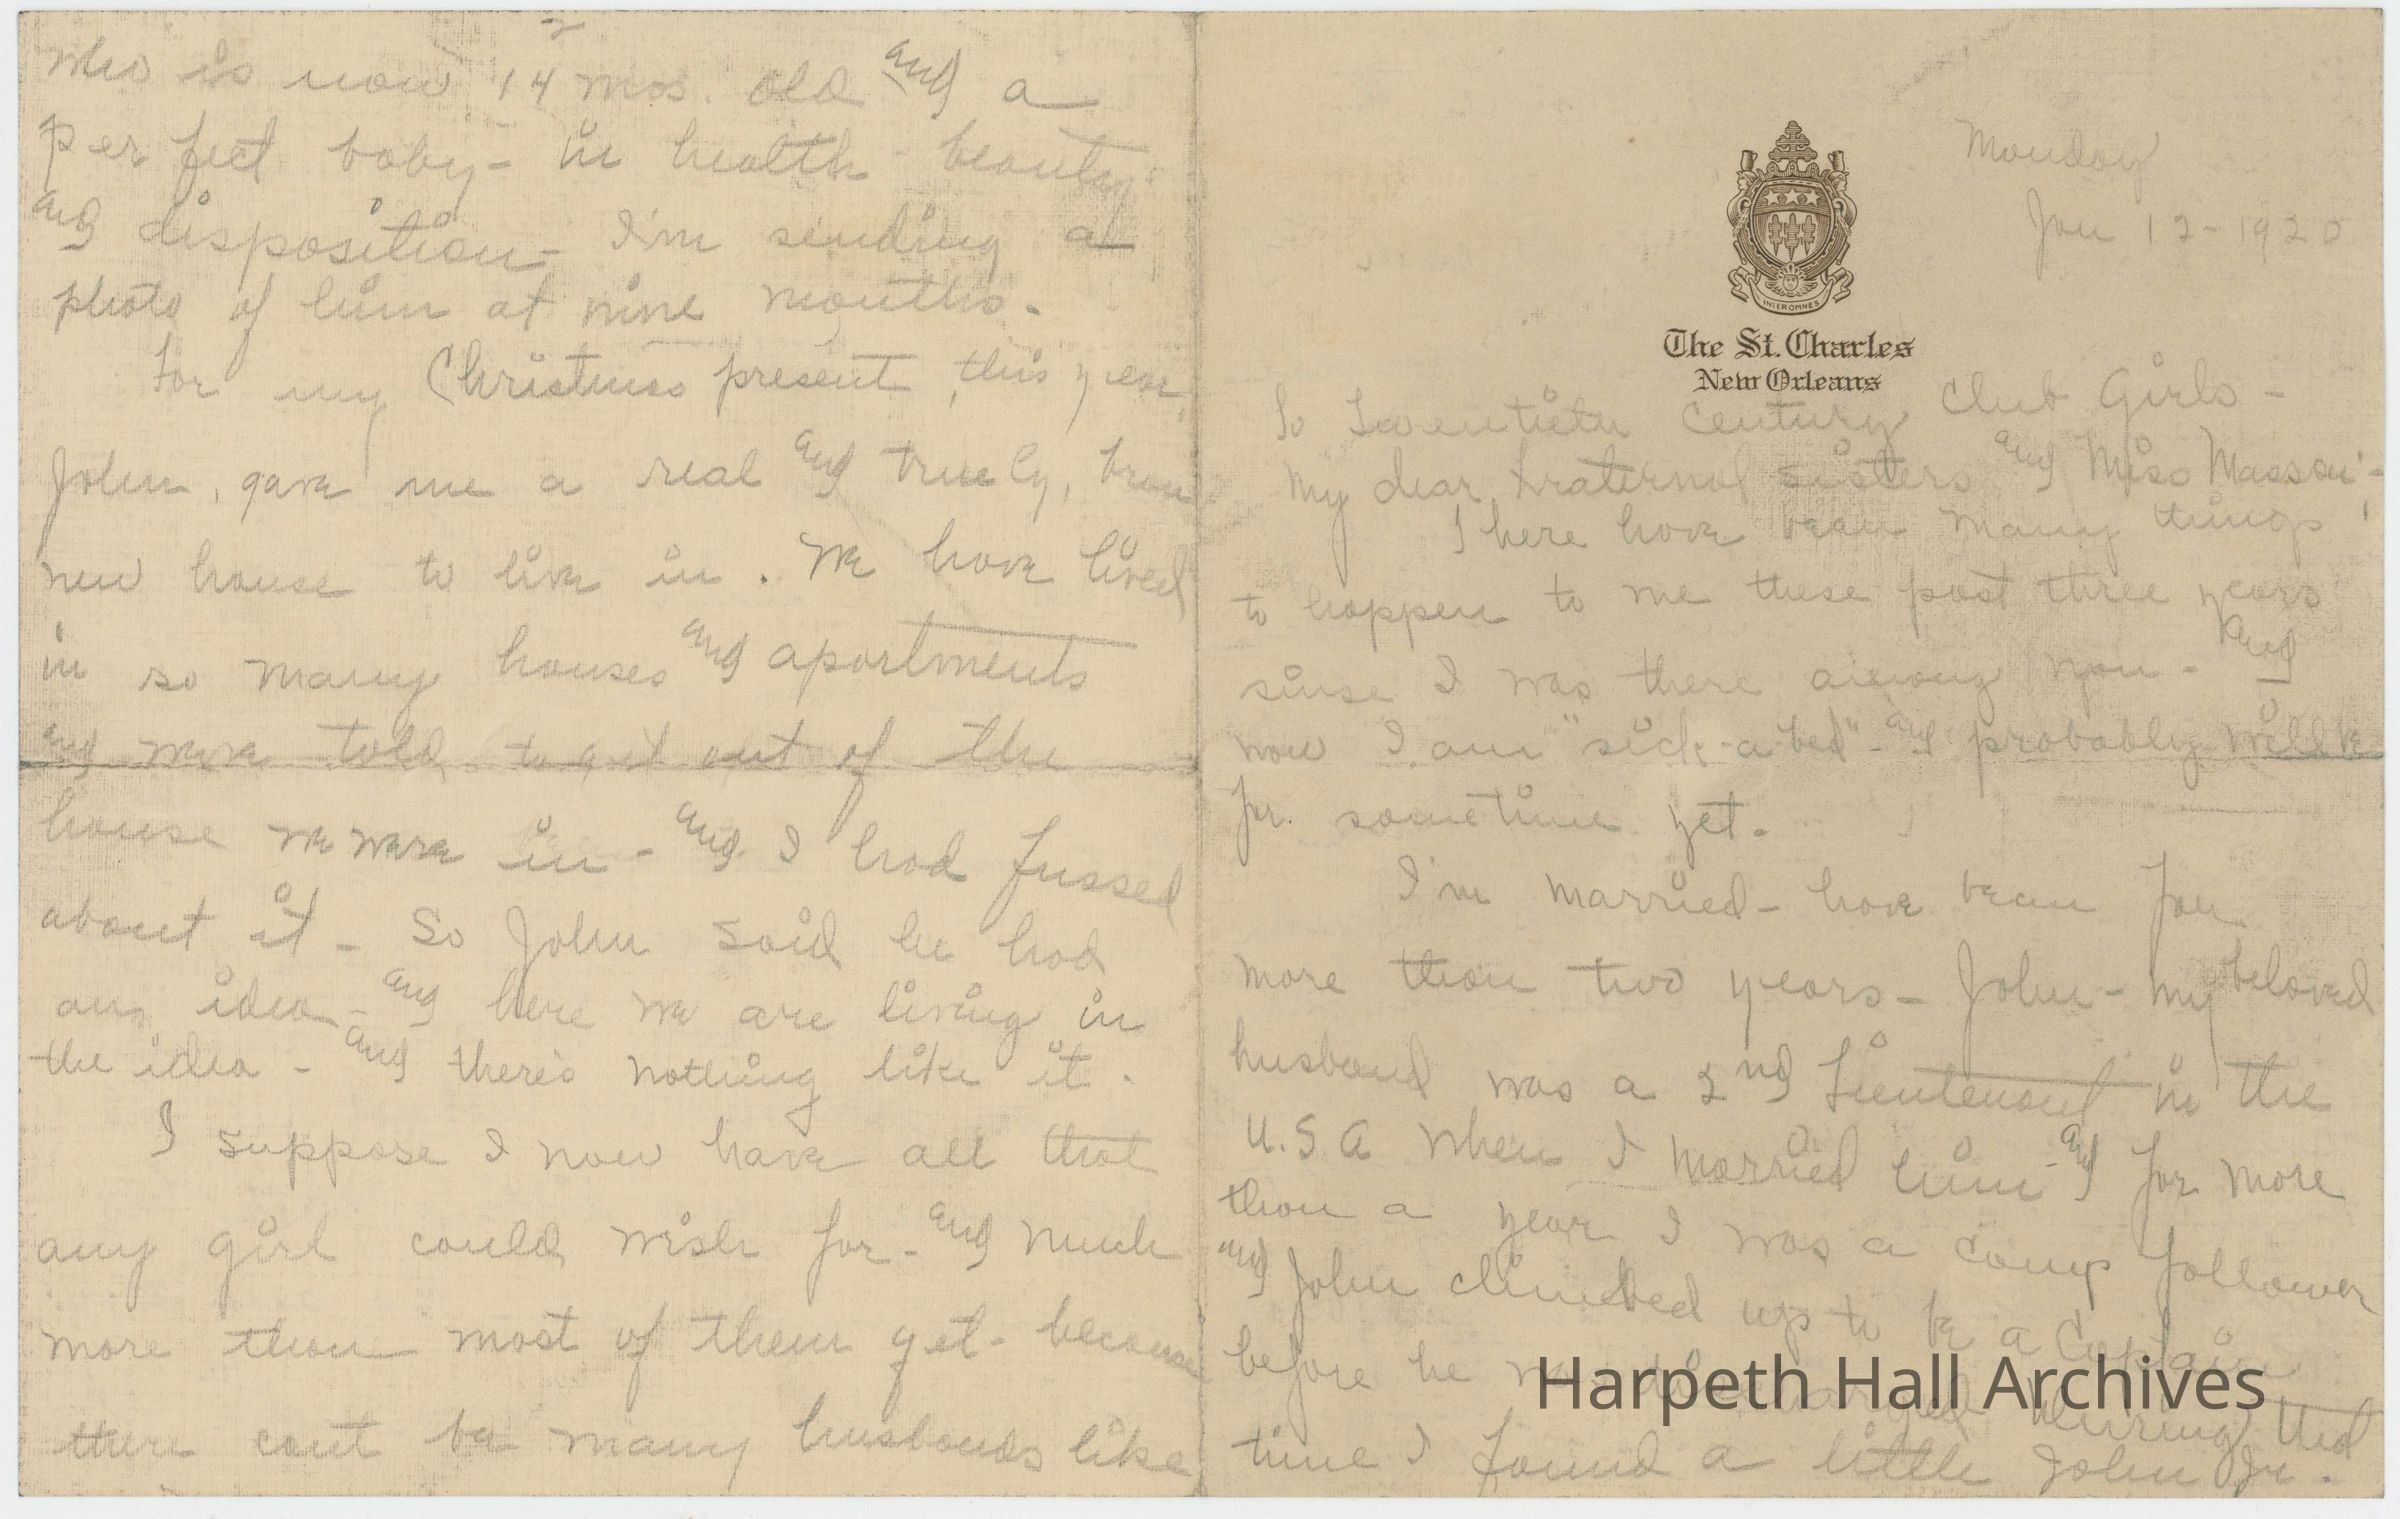 Monday
Jan 12-1920
INTEROMNES
The St. Charles
New Orleans
To Twentieth Century Club Girls -
My dear fraternal sisters and Miss Masson; -
There have been many things
to happen to me these past three years
sinse I was there among you - and
now I am "sick-a-bed" - and probably will be
for sometime yet.
I'm married - have been for
more than two years - John - my beloved
husband was a 2nd Lieutenant in the
U.S.A when I married him - and for more
than a year I was a camp follower
and John climbed up to be a Captain
before he was discharged During that
time I found a little John Jr.
2
who is now 14 mos. old and a
perfect baby - in health - beauty
and disposition - I'm sending a
photo of him at nine months.
For my Christmas present, this year,
John, gave me a real and truely, bran
new house to live in. We have lived
in so many houses and apartments
and were told to get out of the
house we were in - and I had fussed
about it - So John said he had
an idea - and here we are living in
the idea - and there's nothing like it.
I suppose I now have all that
any girl could wish for - and much
more than most of them get - because
there cant be many husbands like
Harpeth Hall Archives